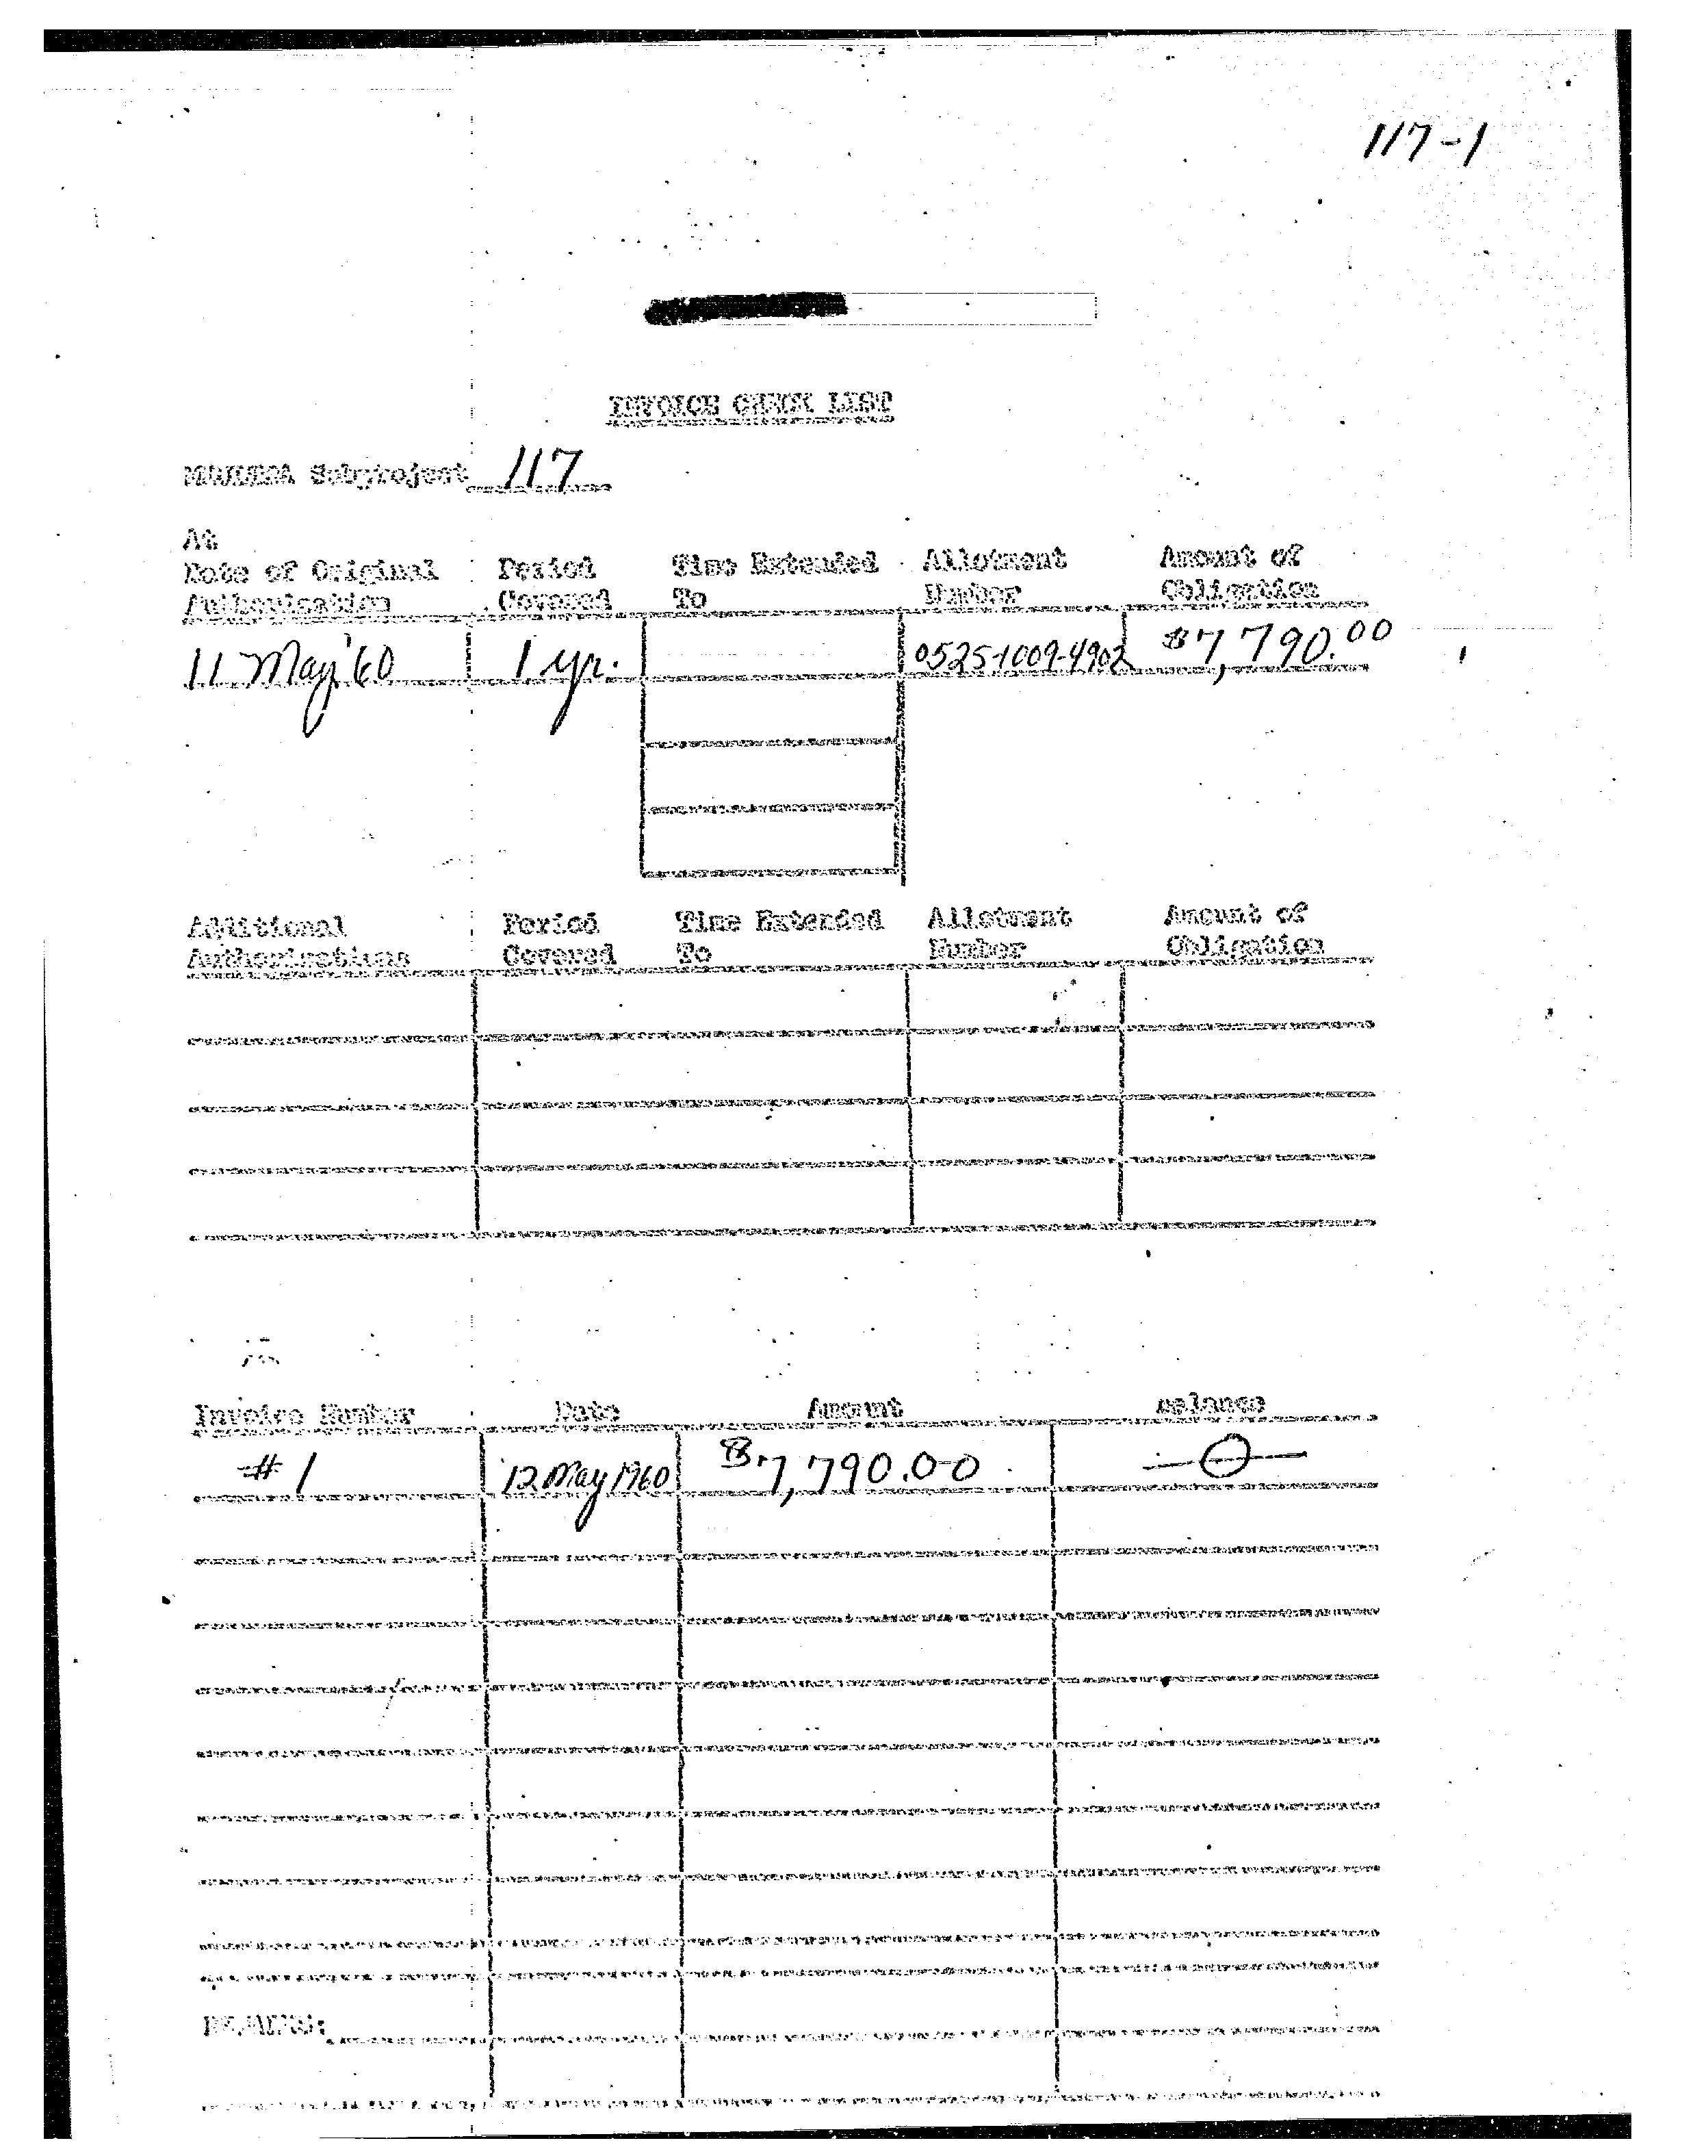 117-1
INVOICE CHECK LIST
MKULTRA Subproject 117
A:
Date of Original Period Time Extended Allotment Amount of
Authorization Covered To Number Obligation
11 May '60 1 yr. 0525-1009-4902 $7,790.00
Additional Period Time Extended Allotment Amount of
Authorizations Covered To Number Obligation
Invoice Number Date Amount Balance
# 1 12 May 1960 $7,790.00 -0-
REMARKS: